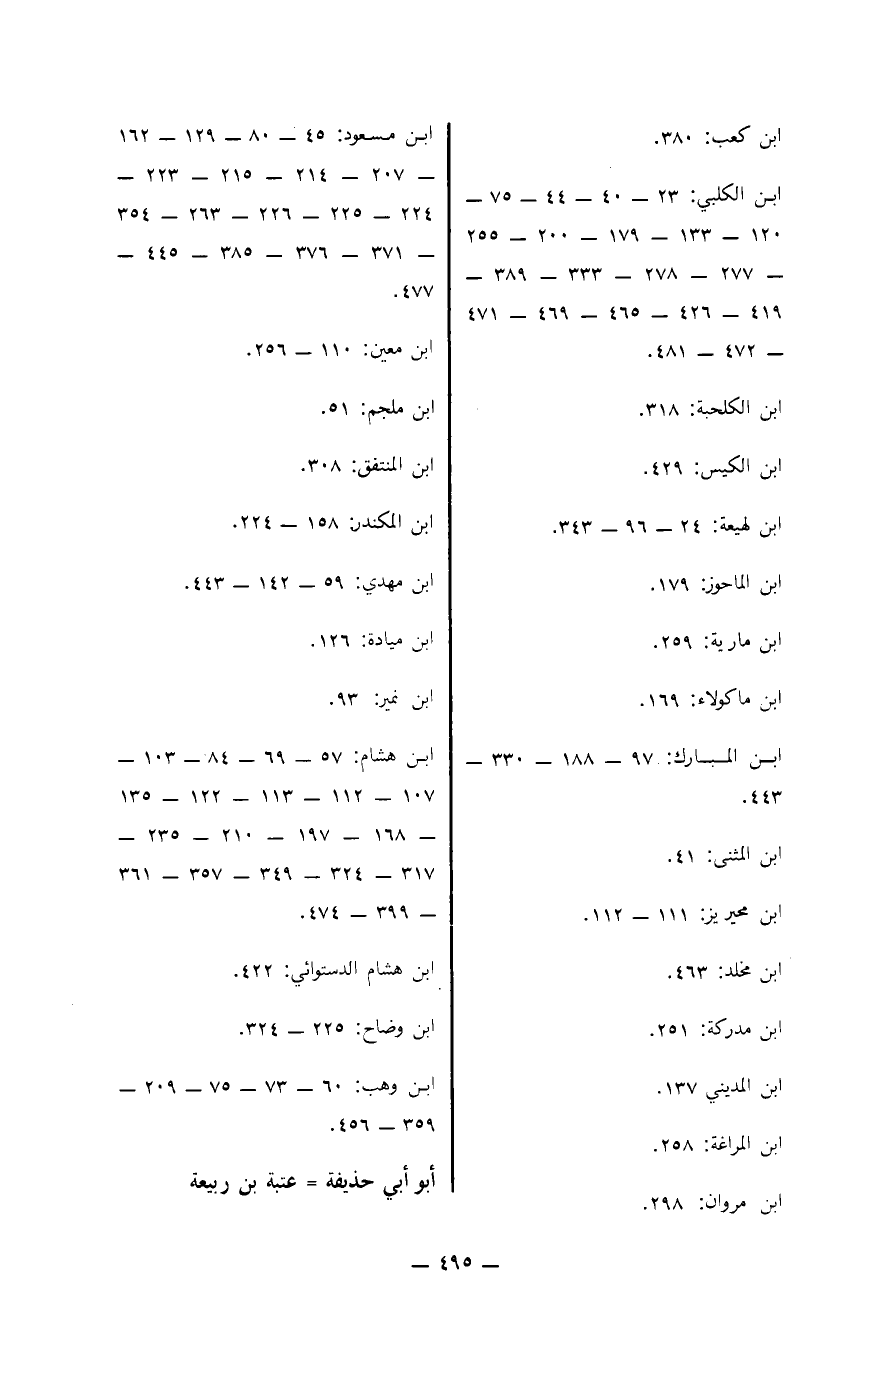 ابن كعب: ٣٨٠.
ابن الكلبي: ٢٣ – ٤٠ – ٤٤ – ٧٥ –
١٢٠ – ١٣٣ – ١٧٩ – ٢٠٠ – ٢٥٥
– ٢٧٧ – ٢٧٨ – ٣٣٣ – ٣٨٩ –
٤١٩ – ٤٢٦ – ٤٦٥ – ٤٦٩ – ٤٧١
– ٤٧٢ – ٤٨١.
ابن الكلحبة: ٣١٨.
ابن الكيس: ٤٢٩.
ابن لهيعة: ٢٤ – ٩٦ – ٣٤٣.
ابن الماحوز: ١٧٩.
ابن مارية: ٢٥٩.
ابن ماكولاء: ١٦٩.
ابن المبارك: ٩٧ – ١٨٨ – ٣٣٠ –
٤٤٣.
ابن المثنى: ٤١.
ابن محيريز: ١١١ – ١١٢.
ابن مخلد: ٤٦٣.
ابن مدركة: ٢٥١.
ابن المديني ١٣٧.
ابن المراغة: ٢٥٨.
ابن مروان: ٢٩٨.
ابن مسعود: ٤٥ – ٨٠ – ١٢٩ – ١٦٢
– ٢٠٧ – ٢١٤ – ٢١٥ – ٢٢٣ –
٢٢٤ – ٢٢٥ – ٢٢٦ – ٢٦٣ – ٣٥٤
– ٣٧١ – ٣٧٦ – ٣٨٥ – ٤٤٥ –
٤٧٧.
ابن معين: ١١٠ – ٢٥٦.
ابن ملجم: ٥١.
ابن المنتفق: ٣٠٨.
ابن المكندر: ١٥٨ – ٢٢٤.
ابن مهدي: ٥٩ – ١٤٢ – ٤٤٣.
ابن ميادة: ١٢٦.
ابن نمير: ٩٣.
ابن هشام: ٥٧ – ٦٩ – ٨٤ – ١٠٣ –
١٠٧ – ١١٢ – ١١٣ – ١٢٢ – ١٣٥
– ١٦٨ – ١٩٧ – ٢١٠ – ٢٣٥ –
٣١٧ – ٣٢٤ – ٣٤٩ – ٣٥٧ – ٣٦١
– ٣٩٩ – ٤٧٤.
ابن هشام الدستوائي: ٤٢٢.
ابن وضاح: ٢٢٥ – ٣٢٤.
ابن وهب: ٦٠ – ٧٣ – ٧٥ – ٢٠٩ –
٣٥٩ – ٤٥٦.
أبو أبي حذيفة = عتبة بن ربيعة
– ٤٩٥ –